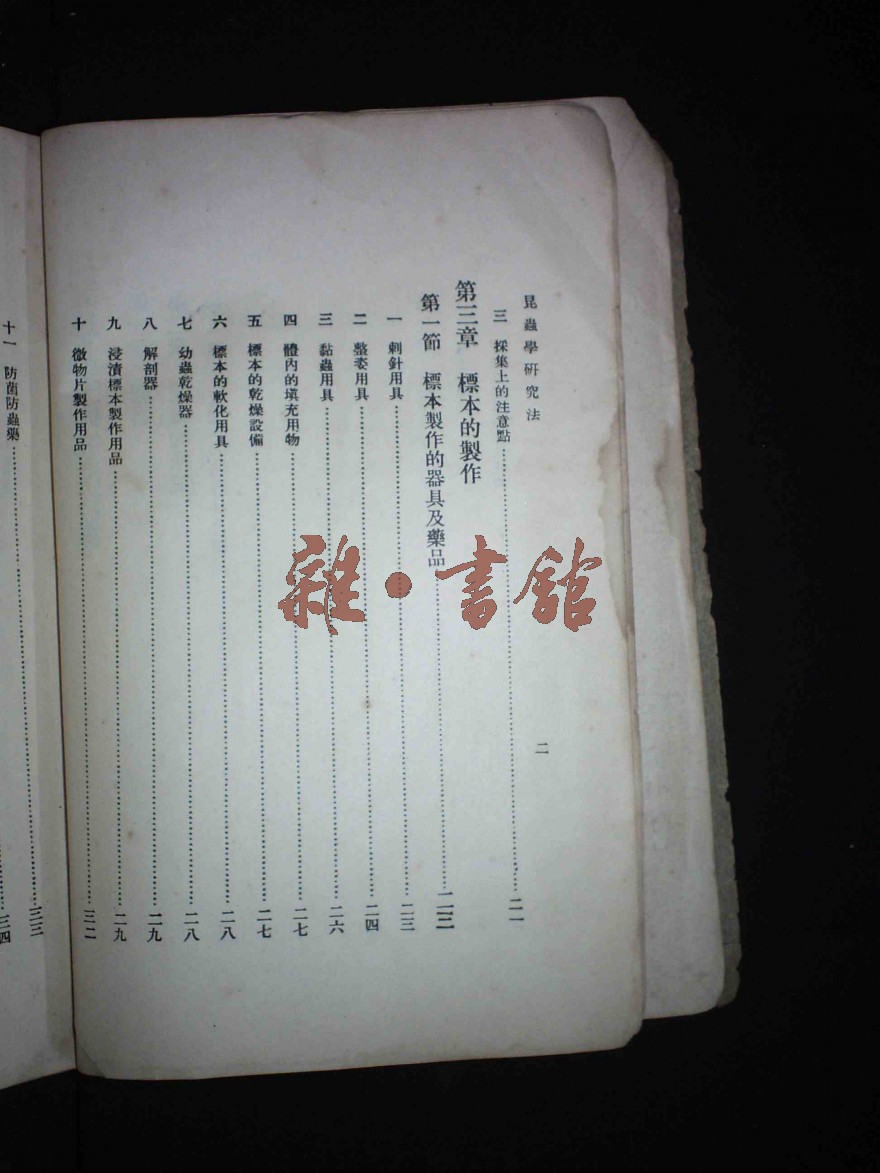 昆蟲學研究法
二
三 採集上的注意點 二一
第三章 標本的製作
第一節 標本製作的器具及藥品 二二
一 刺針用具 二三
二 整姿用具 二四
三 黏蟲用具 二六
四 體內的填充用物 二七
五 標本的乾燥設備 二七
六 標本的軟化用具 二八
七 幼蟲乾燥器 二八
八 解剖器 二九
九 浸漬標本製作用品 二九
十 微物片製作用品 三二
十一 防菌防蟲藥 三三
三四
雜·書館